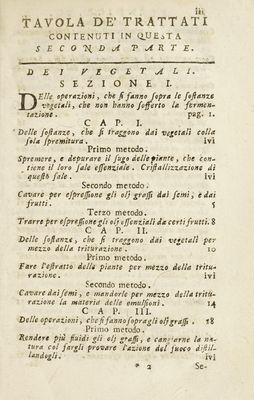 iii
TAVOLA DE' TRATTATI
CONTENUTI IN QUESTA
SECONDA PARTE.
DEI VEGETALI.
SEZIONE I.
DElle operazioni, che si fanno sopra le sostanze
vegetali, che non hanno sofferto la fermen-
tazione. pag. 1.
CAP. I.
Delle sostanze, che si traggono dai vegetali colla
sola spremitura. ivi
Primo metodo.
Spremere, e depurare il sugo delle piante, che con-
tiene il loro sale essenziale. Cristallizzazione di
questo sale. ivi
Secondo metodo.
Cavare per espressione gli olj grassi dai semi, e dai
frutti. 5
Terzo metodo.
Trarre per espressione gli olj essenziali da certi frutti. 8
CAP. II.
Delle sostanze, che si traggono dai vegetali per
mezzo della triturazione. 10
Primo metodo.
Fare l'estratto delle piante per mezzo della tritu-
razione. ivi
Secondo metodo.
Cavare dai semi, e mandorle per mezzo della tritu-
razione la materia delle emulsioni. 14
CAP. III.
Delle operazioni, che si fanno sopra gli olj grassi. 18
Primo metodo.
Rendere più fluidi gli olj grassi, e cangiarne la na-
tura col fargli provare l'azione del fuoco distil-
landogli. ivi
* 2 Se-